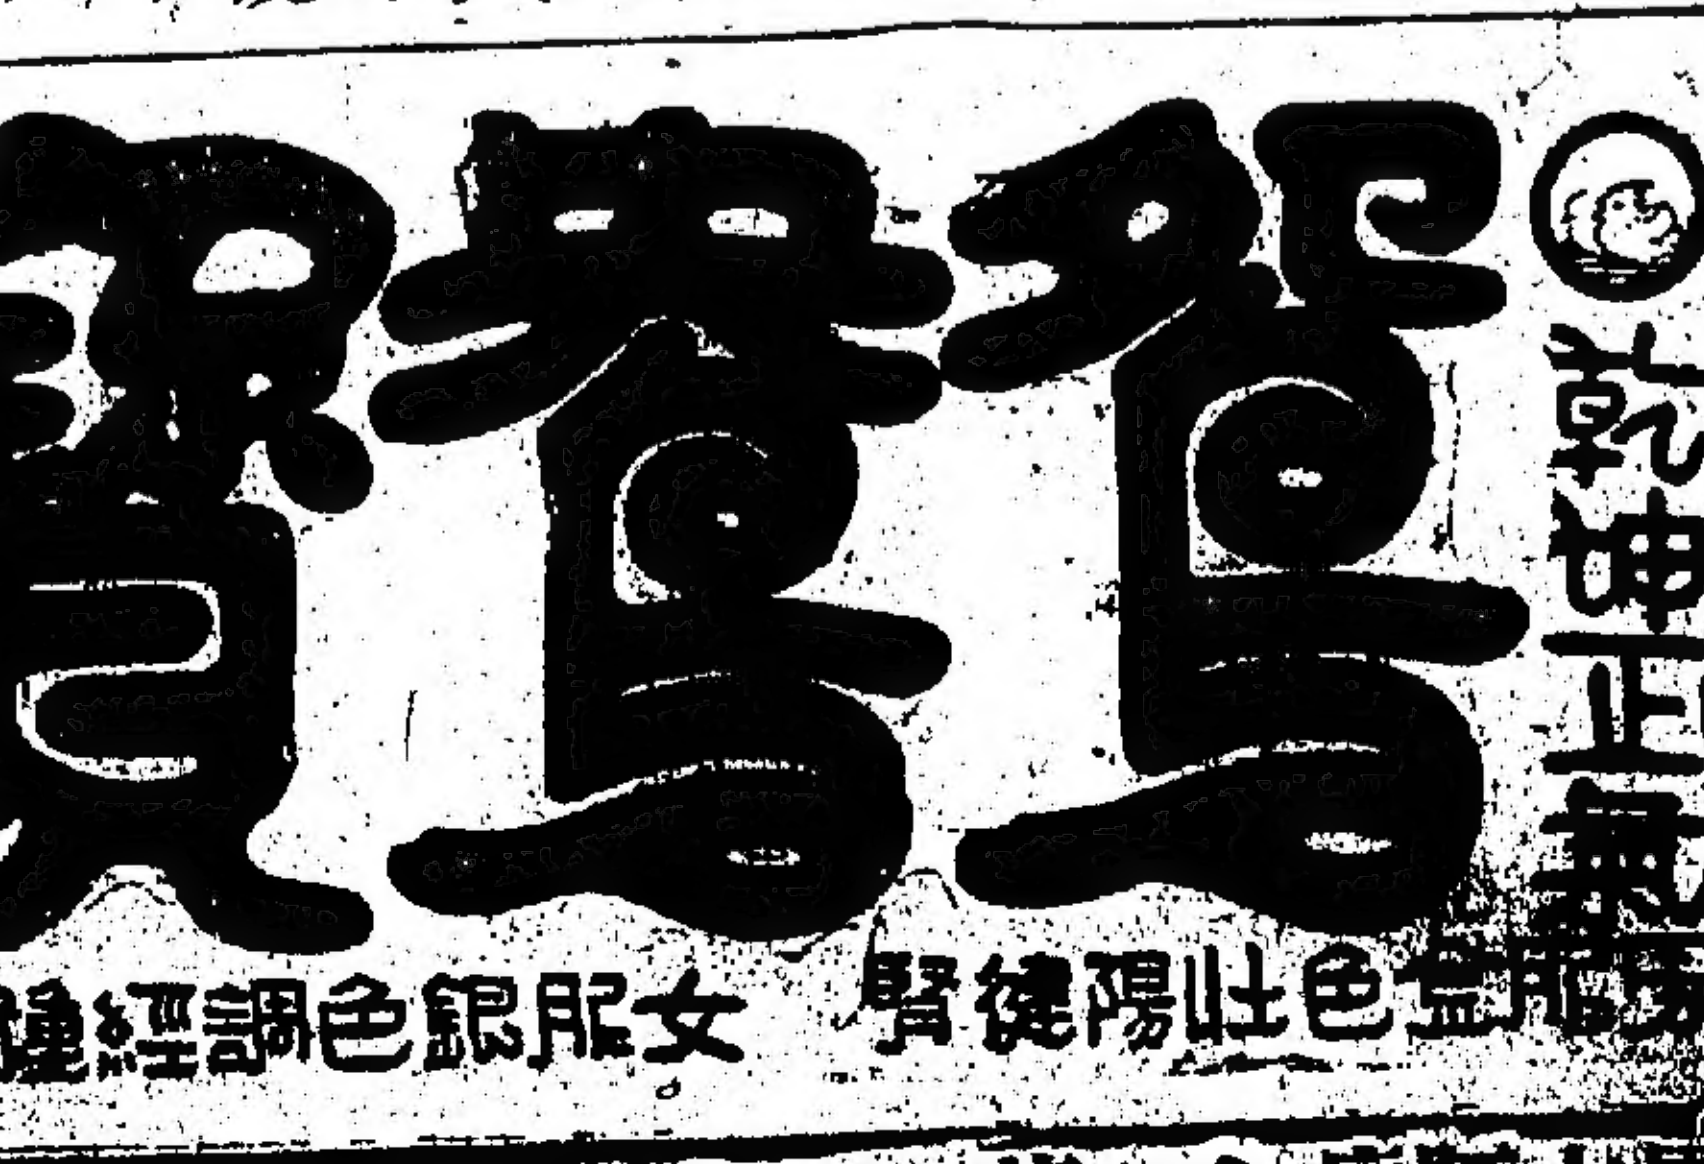 乾坤正氣
鴛鴦
男服金色壯陽健腎
女服銀色調經種